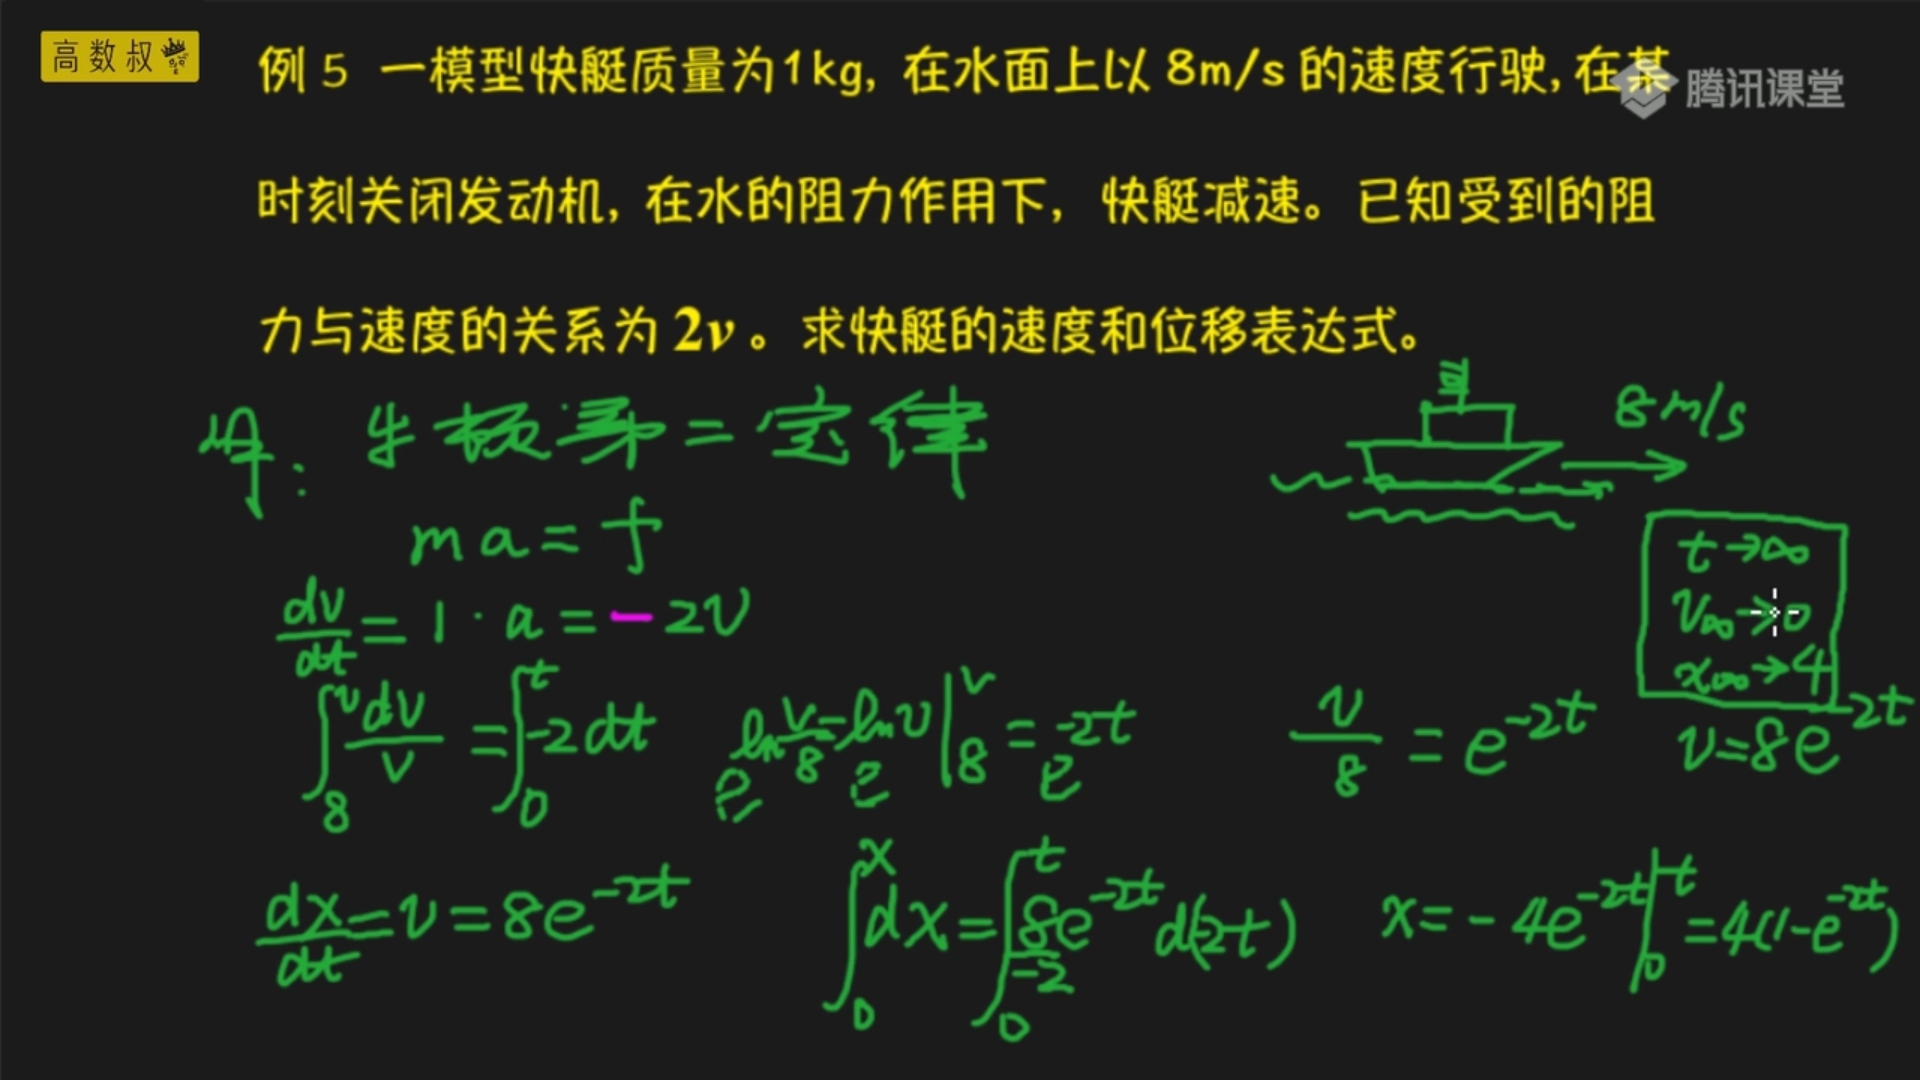 高数叔
例5 一模型快艇质量为1kg, 在水面上以8m/s的速度行驶, 在某
腾讯课堂
时刻关闭发动机, 在水的阻力作用下, 快艇减速。已知受到的阻
力与速度的关系为2v。求快艇的速度和位移表达式。
8m/s
解: 牛顿第二定律
ma=f
t→∞
v∞→0
x∞→4
dv/dt=1·a=-2v
∫_8^v dv/v=∫_0^t -2dt
e^{ln v/8}=e^{ln v|_8^v}=e^{-2t}
v/8=e^{-2t}
v=8e^{-2t}
dx/dt=v=8e^{-2t}
∫_0^x dx=∫_0^t 8e^{-2t}/-2 d(-2t)
x=-4e^{-2t}|_0^t=4(1-e^{-2t})